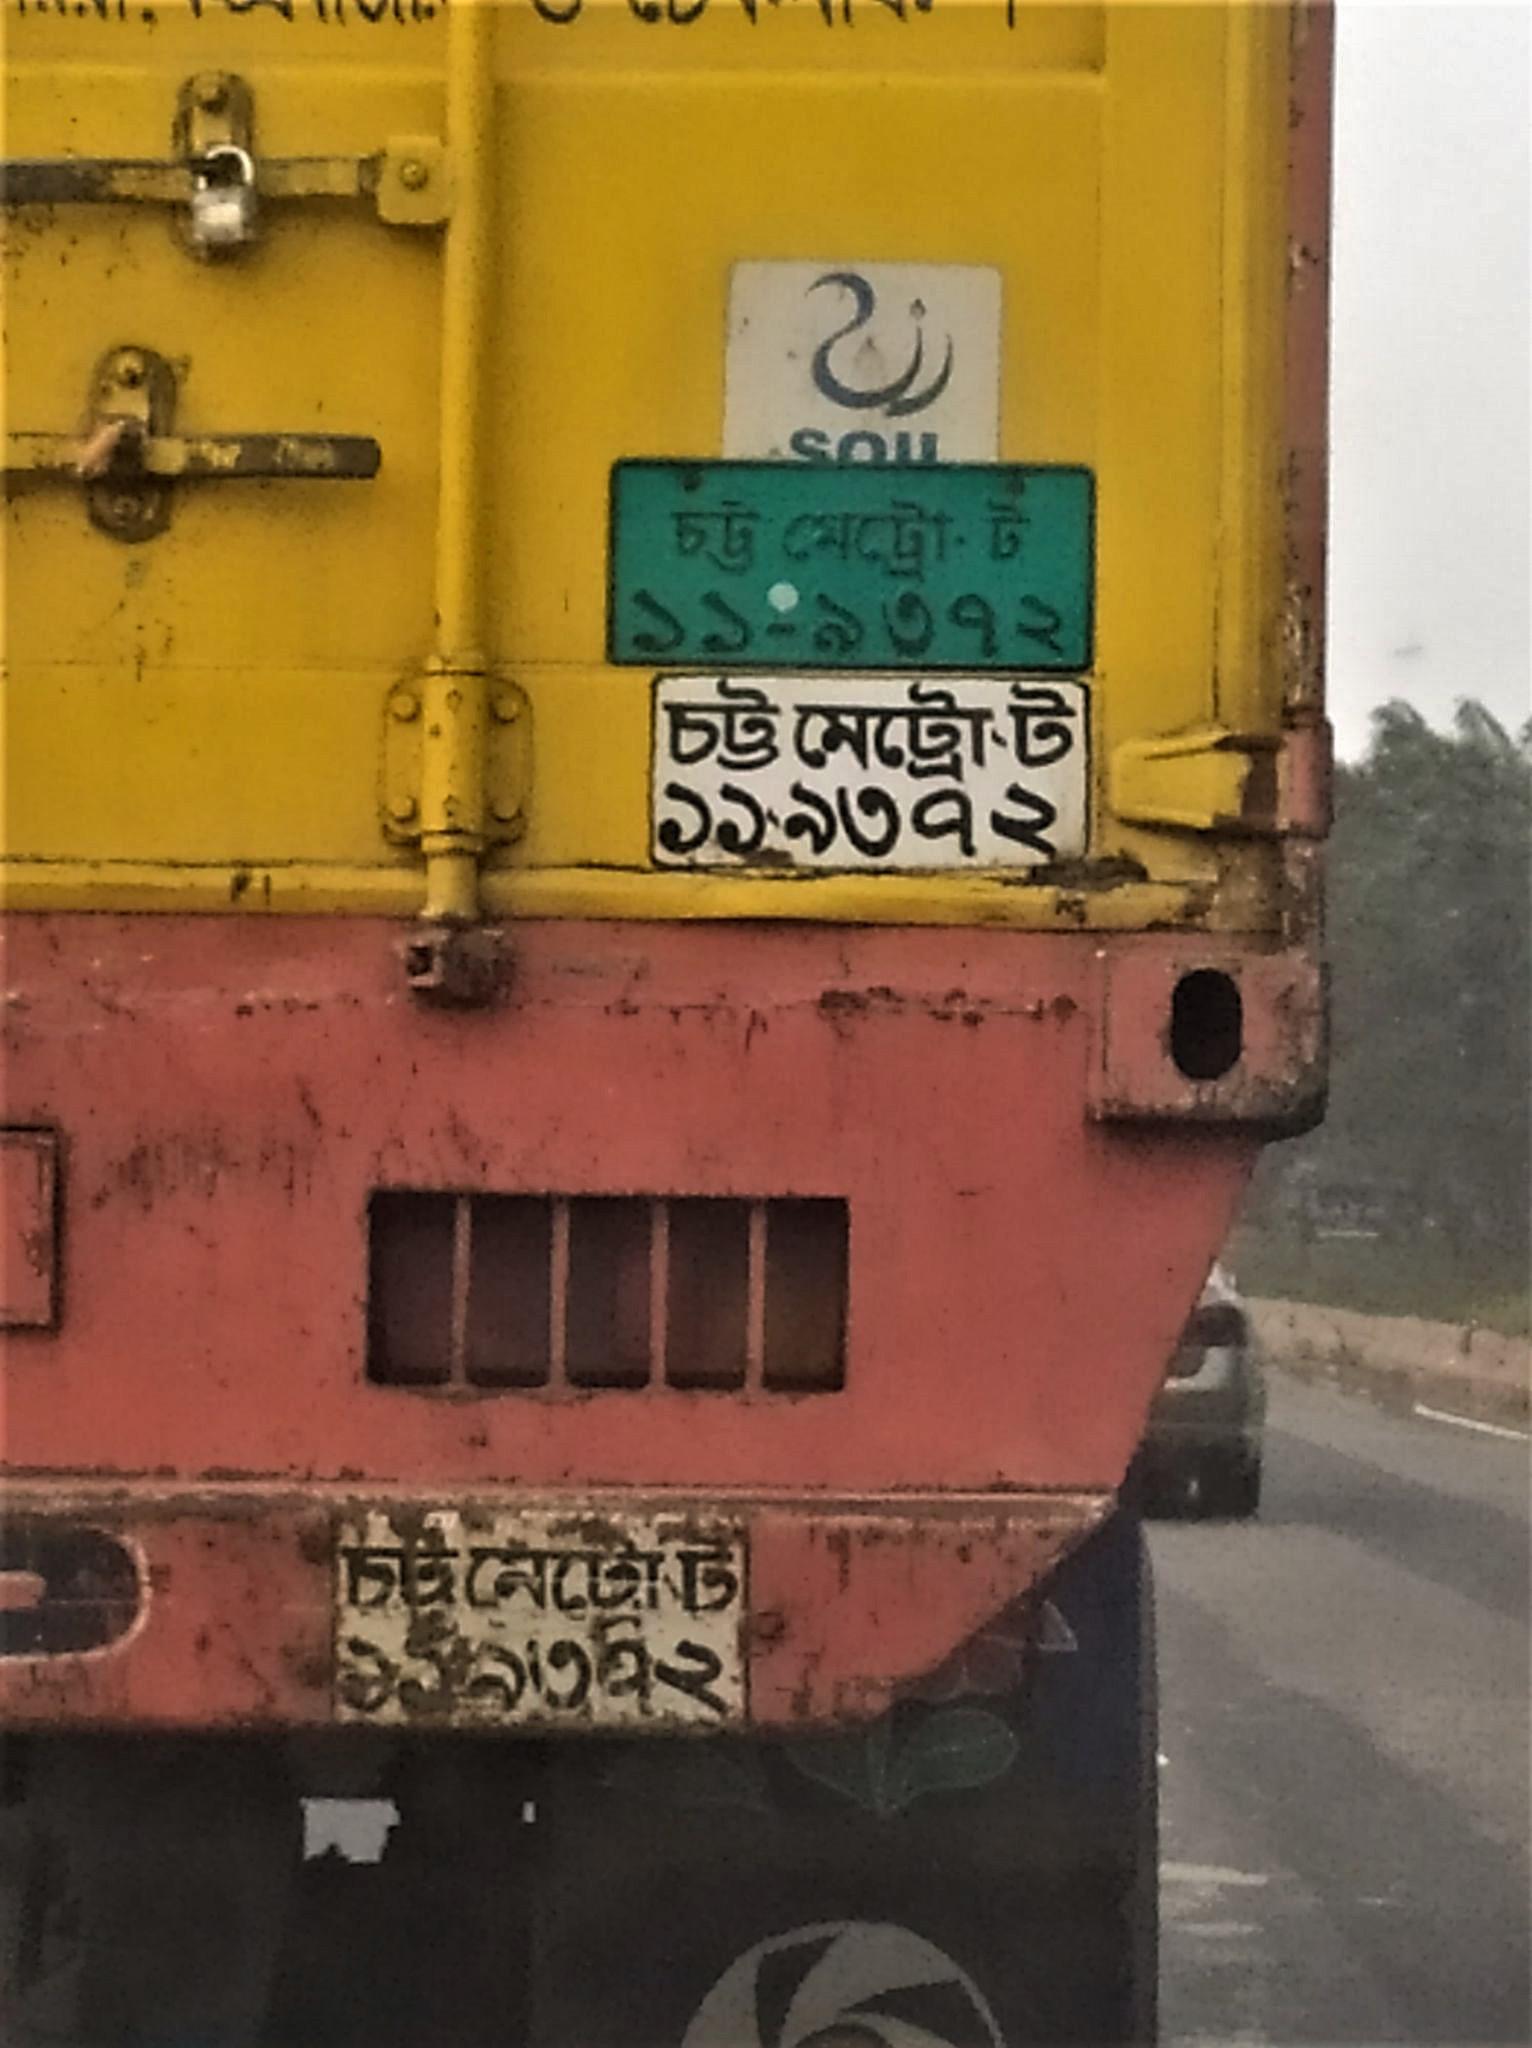 SQU
চট্ট মেট্রো-ট
১১-৯৩৭২
চট্ট মেট্রো-ট
১১-৯৩৭২
চট্ট মেট্রো-ট
১১-৯৩৭২